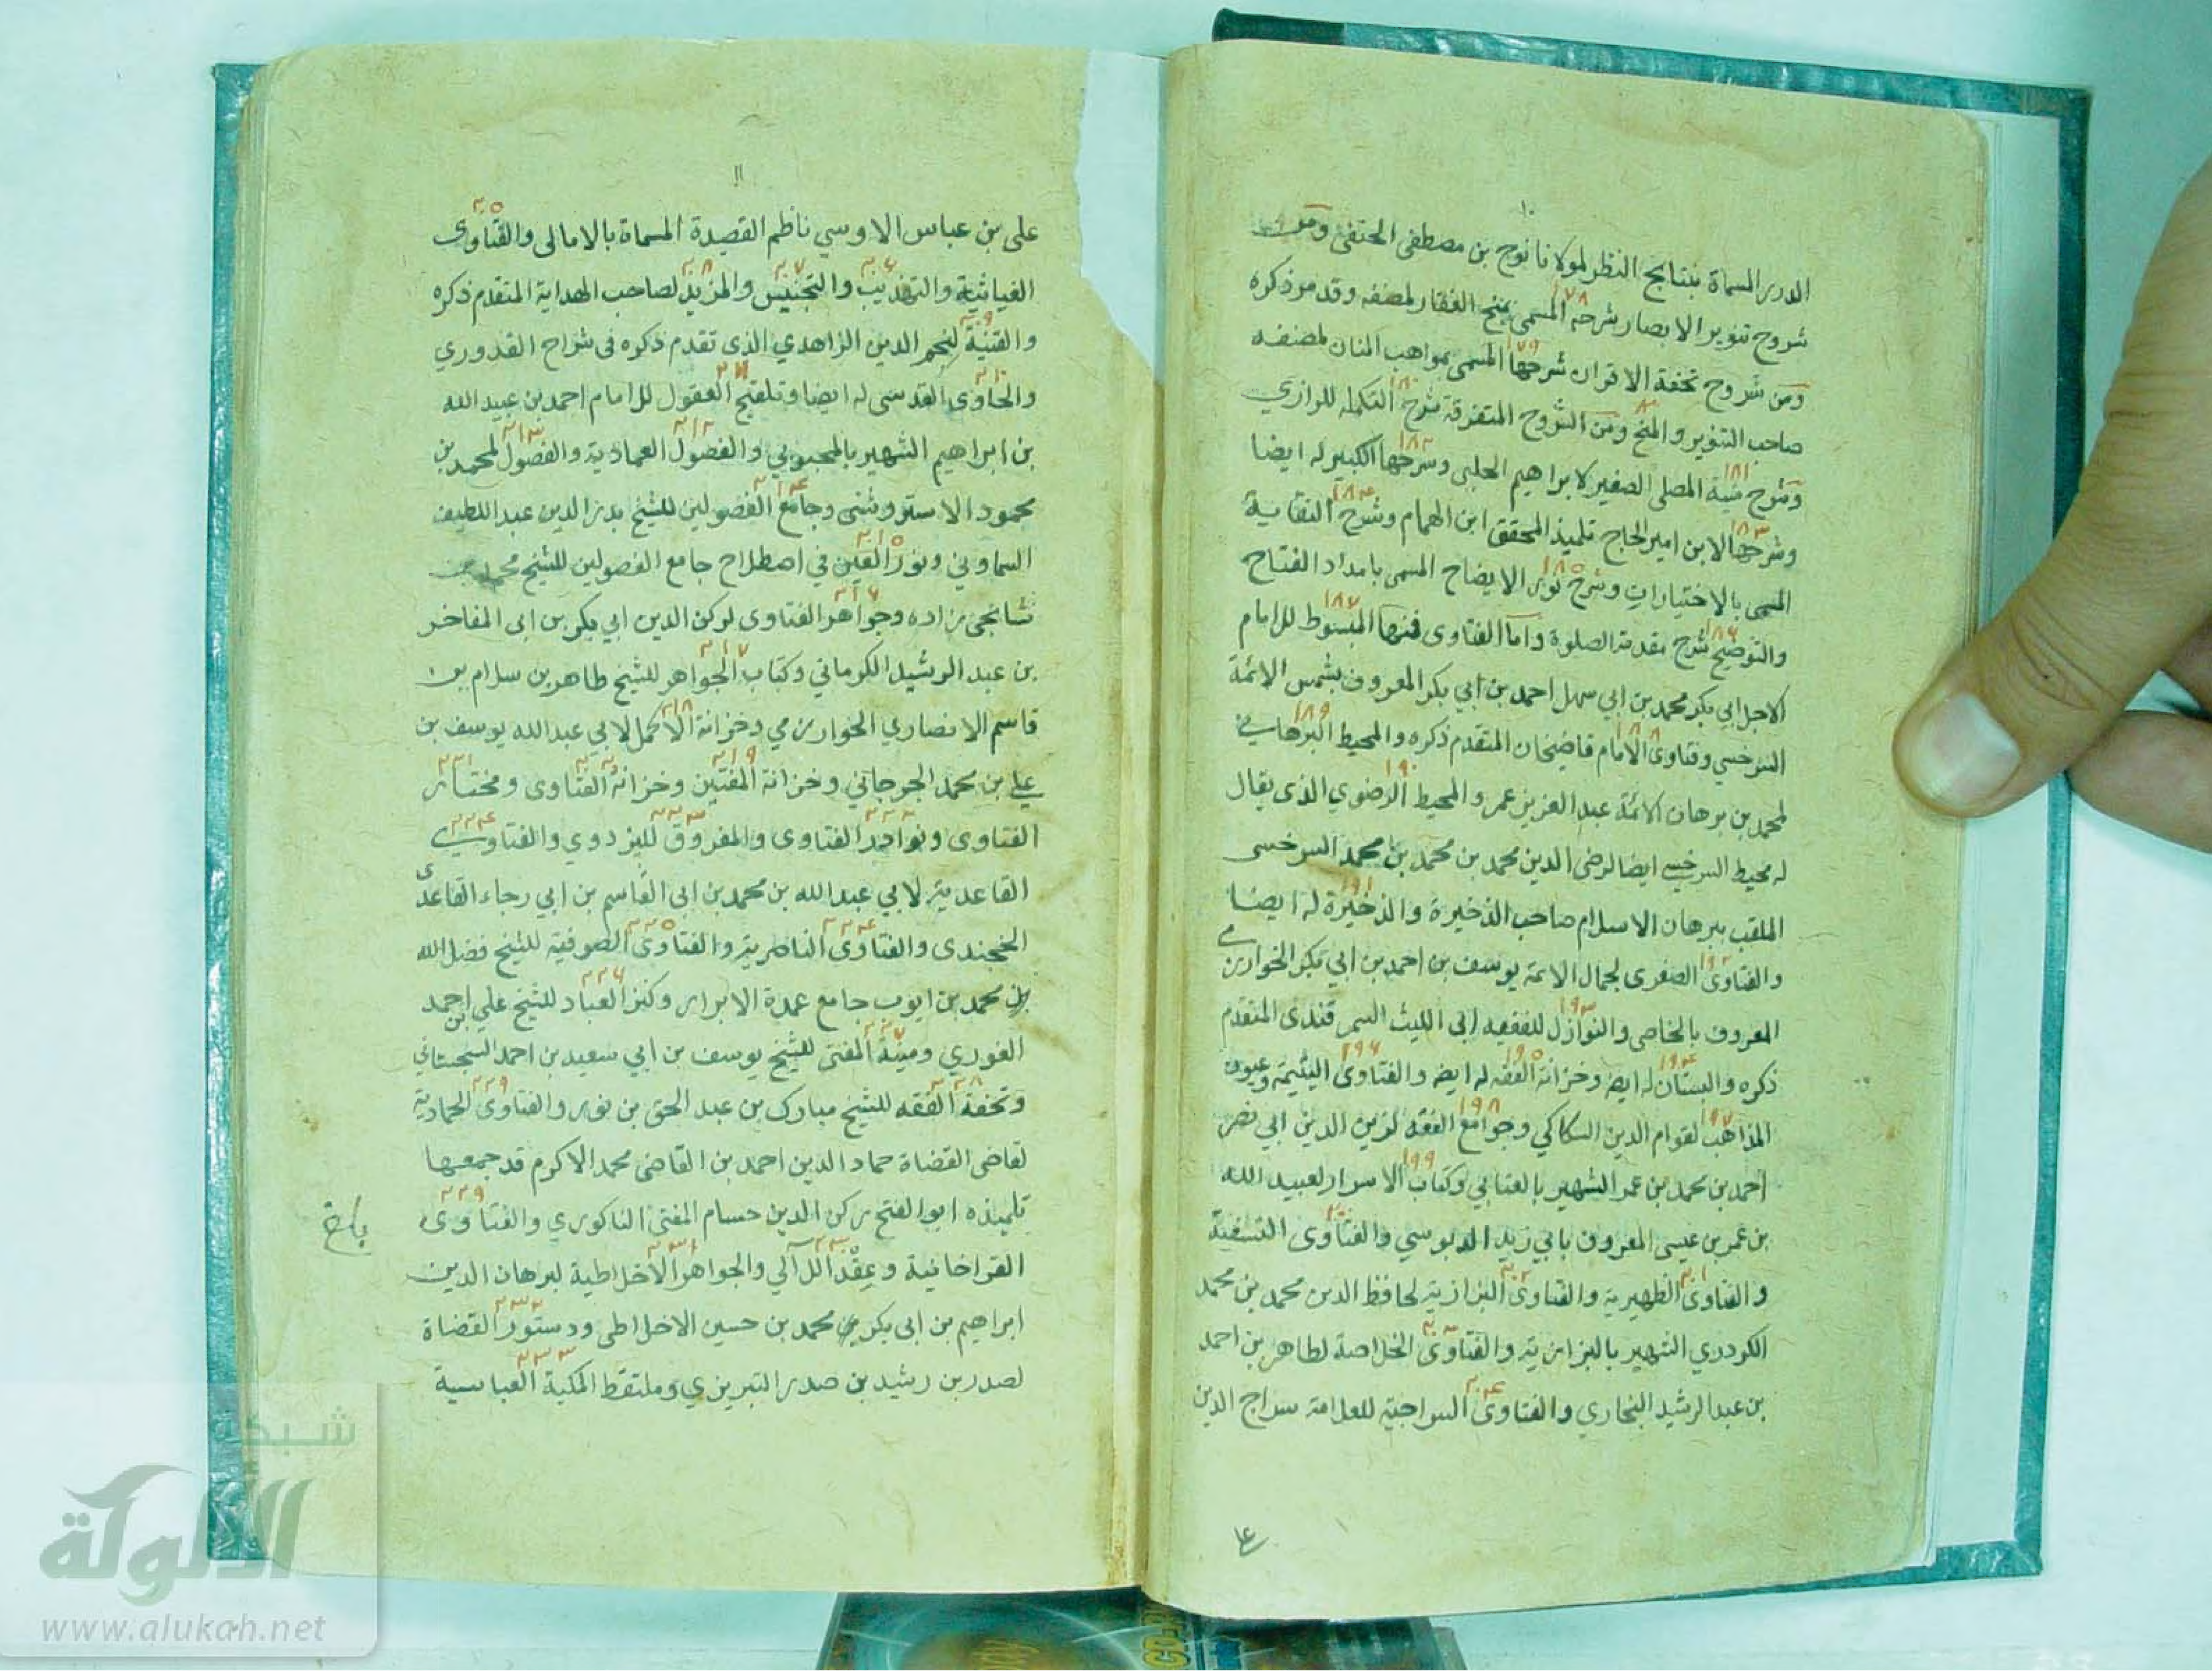 ١٠
الدرر المسماة بنتايج النظر لمولانا نوح بن مصطفى الحنفى ومن
شروح تنوير الابصار شرحه المسمى بمنح الغفار لمصنفه وقد مر ذكره
١٧٨
ومن شروح تحفة الاقران شرحها المسمى بمواهب المنان لمصنفه
١٧٩
صاحب التنوير والمنح ومن الشروح المتفرقة شرح التكمله للرازي
١٨٠
وشرح منية المصلى الصغير لابراهيم الحلبى وشرحها الكبير له ايضا
١٨١ ١٨٢
وشرحها لابن امير الحاج تلميذ المحقق ابن الهمام وشرح النقاية
١٨٣ ١٨٤
المسمى بالاختيارات وشرح نور الايضاح المسمى بامداد الفتاح
١٨٥
والتوضيح شرح مقدمة الصلوة واما الفتاوى فمنها المبسوط للامام
١٨٦ ١٨٧
الاجل ابي بكر محمد بن ابي سهل احمد بن ابي بكر المعروف بشمس الائمة
السرخسي وفتاوى الامام قاضيخان المتقدم ذكره والمحيط البرهاني
١٨٨ ١٨٩
لمحمد بن برهان الائمة عبد العزيز عمر والمحيط الرضوي الذى يقال
١٩٠
له محيط السرخسي ايضا لرضى الدين محمد بن محمد بن محمد السرخسى
الملقب ببرهان الاسلام صاحب الذخيرة والذخيرة له ايضا
١٩١
والفتاوى الصغرى لجمال الائمة يوسف بن احمد بن ابي بكر الخوارزمي
١٩٢
المعروف بالخاصى والنوازل للفقيه ابى الليث السمرقندى المتقدم
١٩٣
ذكره والبستان له ايضا وخزانة الفقه له ايضا والفتاوى اليتيمة وعيون
١٩٤ ١٩٥ ١٩٦
المذاهب لقوام الدين الكاكي وجوامع الفقه لزين الدين ابي نصر
١٩٧ ١٩٨
احمد بن محمد بن عمر الشهير بالعتابي وكتاب الاسرار لعبيد الله
١٩٩
بن عمر بن عيسى المعروف بابي زيد الدبوسي والفتاوى النسفية
٢٠٠
والفتاوى الظهيرية والفتاوى البزازية لحافظ الدين محمد بن محمد
٢٠١ ٢٠٢
الكردري الشهير بالبزازية والفتاوى الخلاصة لطاهر بن احمد
٢٠٣
بن عبد الرشيد البخاري والفتاوى السراجية للعلامة سراج الدين
٢٠٤
١١
على بن عباس الاوسي ناظم القصيدة المسماة بالامالى والفتاوى
٢٠٥
الغياثية والتهذيب والتجنيس والمزيد لصاحب الهداية المتقدم ذكره
٢٠٦ ٢٠٧ ٢٠٨
والقنية لنجم الدين الزاهدي الذى تقدم ذكره فى شراح القدوري
٢٠٩
والحاوى القدسى له ايضا وتلقيح العقول للامام احمد بن عبيد الله
٢١٠ ٢١١
بن ابراهيم الشهير بالمحبوبي والفصول العمادية والفصول لمحمد بن
٢١٢ ٢١٣
محمود الاستروشنى وجامع الفصولين للشيخ بدر الدين عبد اللطيف
٢١٤
السماوني ونور العين في اصطلاح جامع الفصولين للشيخ محمد بن
٢١٥
نشانجى زاده وجواهر الفتاوى لركن الدين ابي بكر بن ابى المفاخر
٢١٦
بن عبد الرشيد الكرماني وكتاب الجواهر للشيخ طاهر بن سلام بن
٢١٧
قاسم الانصاري الخوارزمي وخزانة الاكمل لابي عبد الله يوسف بن
٢١٨
علي بن محمد الجرجاني وخزانة المفتين وخزانة الفتاوى ومختار
٢١٩ ٢٢٠ ٢٢١
الفتاوى ونوادر الفتاوى والفروق لليزدوي والفتاوى
٢٢٢ ٢٢٣ ٢٢٤
القاعدية لابي عبد الله بن محمد بن ابى القاسم بن ابي رجاء القاعدى
الخجندى والفتاوى الناصرية والفتاوى الصوفية للشيخ فضل الله
٢٢٤ ٢٢٥
بن محمد بن ايوب جامع عمدة الابرار وكنز العباد للشيخ علي بن احمد
٢٢٦
الغوري ومنية المفتى للشيخ يوسف بن ابي سعيد بن احمد السجستاني
٢٢٧
وتحفة الفقه للشيخ مبارك بن عبد الحق بن نور والفتاوى الحمادية
٢٢٨ ٢٢٩
لقاضى القضاة حماد الدين احمد بن القاضى محمد الاكرم قد جمعها
تلميذه ابو الفتح ركن الدين حسام المفتى الناكوري والفتاوى
٢٢٩
القراخانية وعقد اللآلي والجواهر الاخلاطية لبرهان الدين
٢٣٠ ٢٣١
ابراهيم بن ابى بكر بن محمد بن حسين الاخلاطى ودستور القضاة
٢٣٢
لصدر بن رشيد بن صدر التبريزي وملتقط المكية العباسية
٢٣٣
شبكة
الألوكة
www.alukah.net